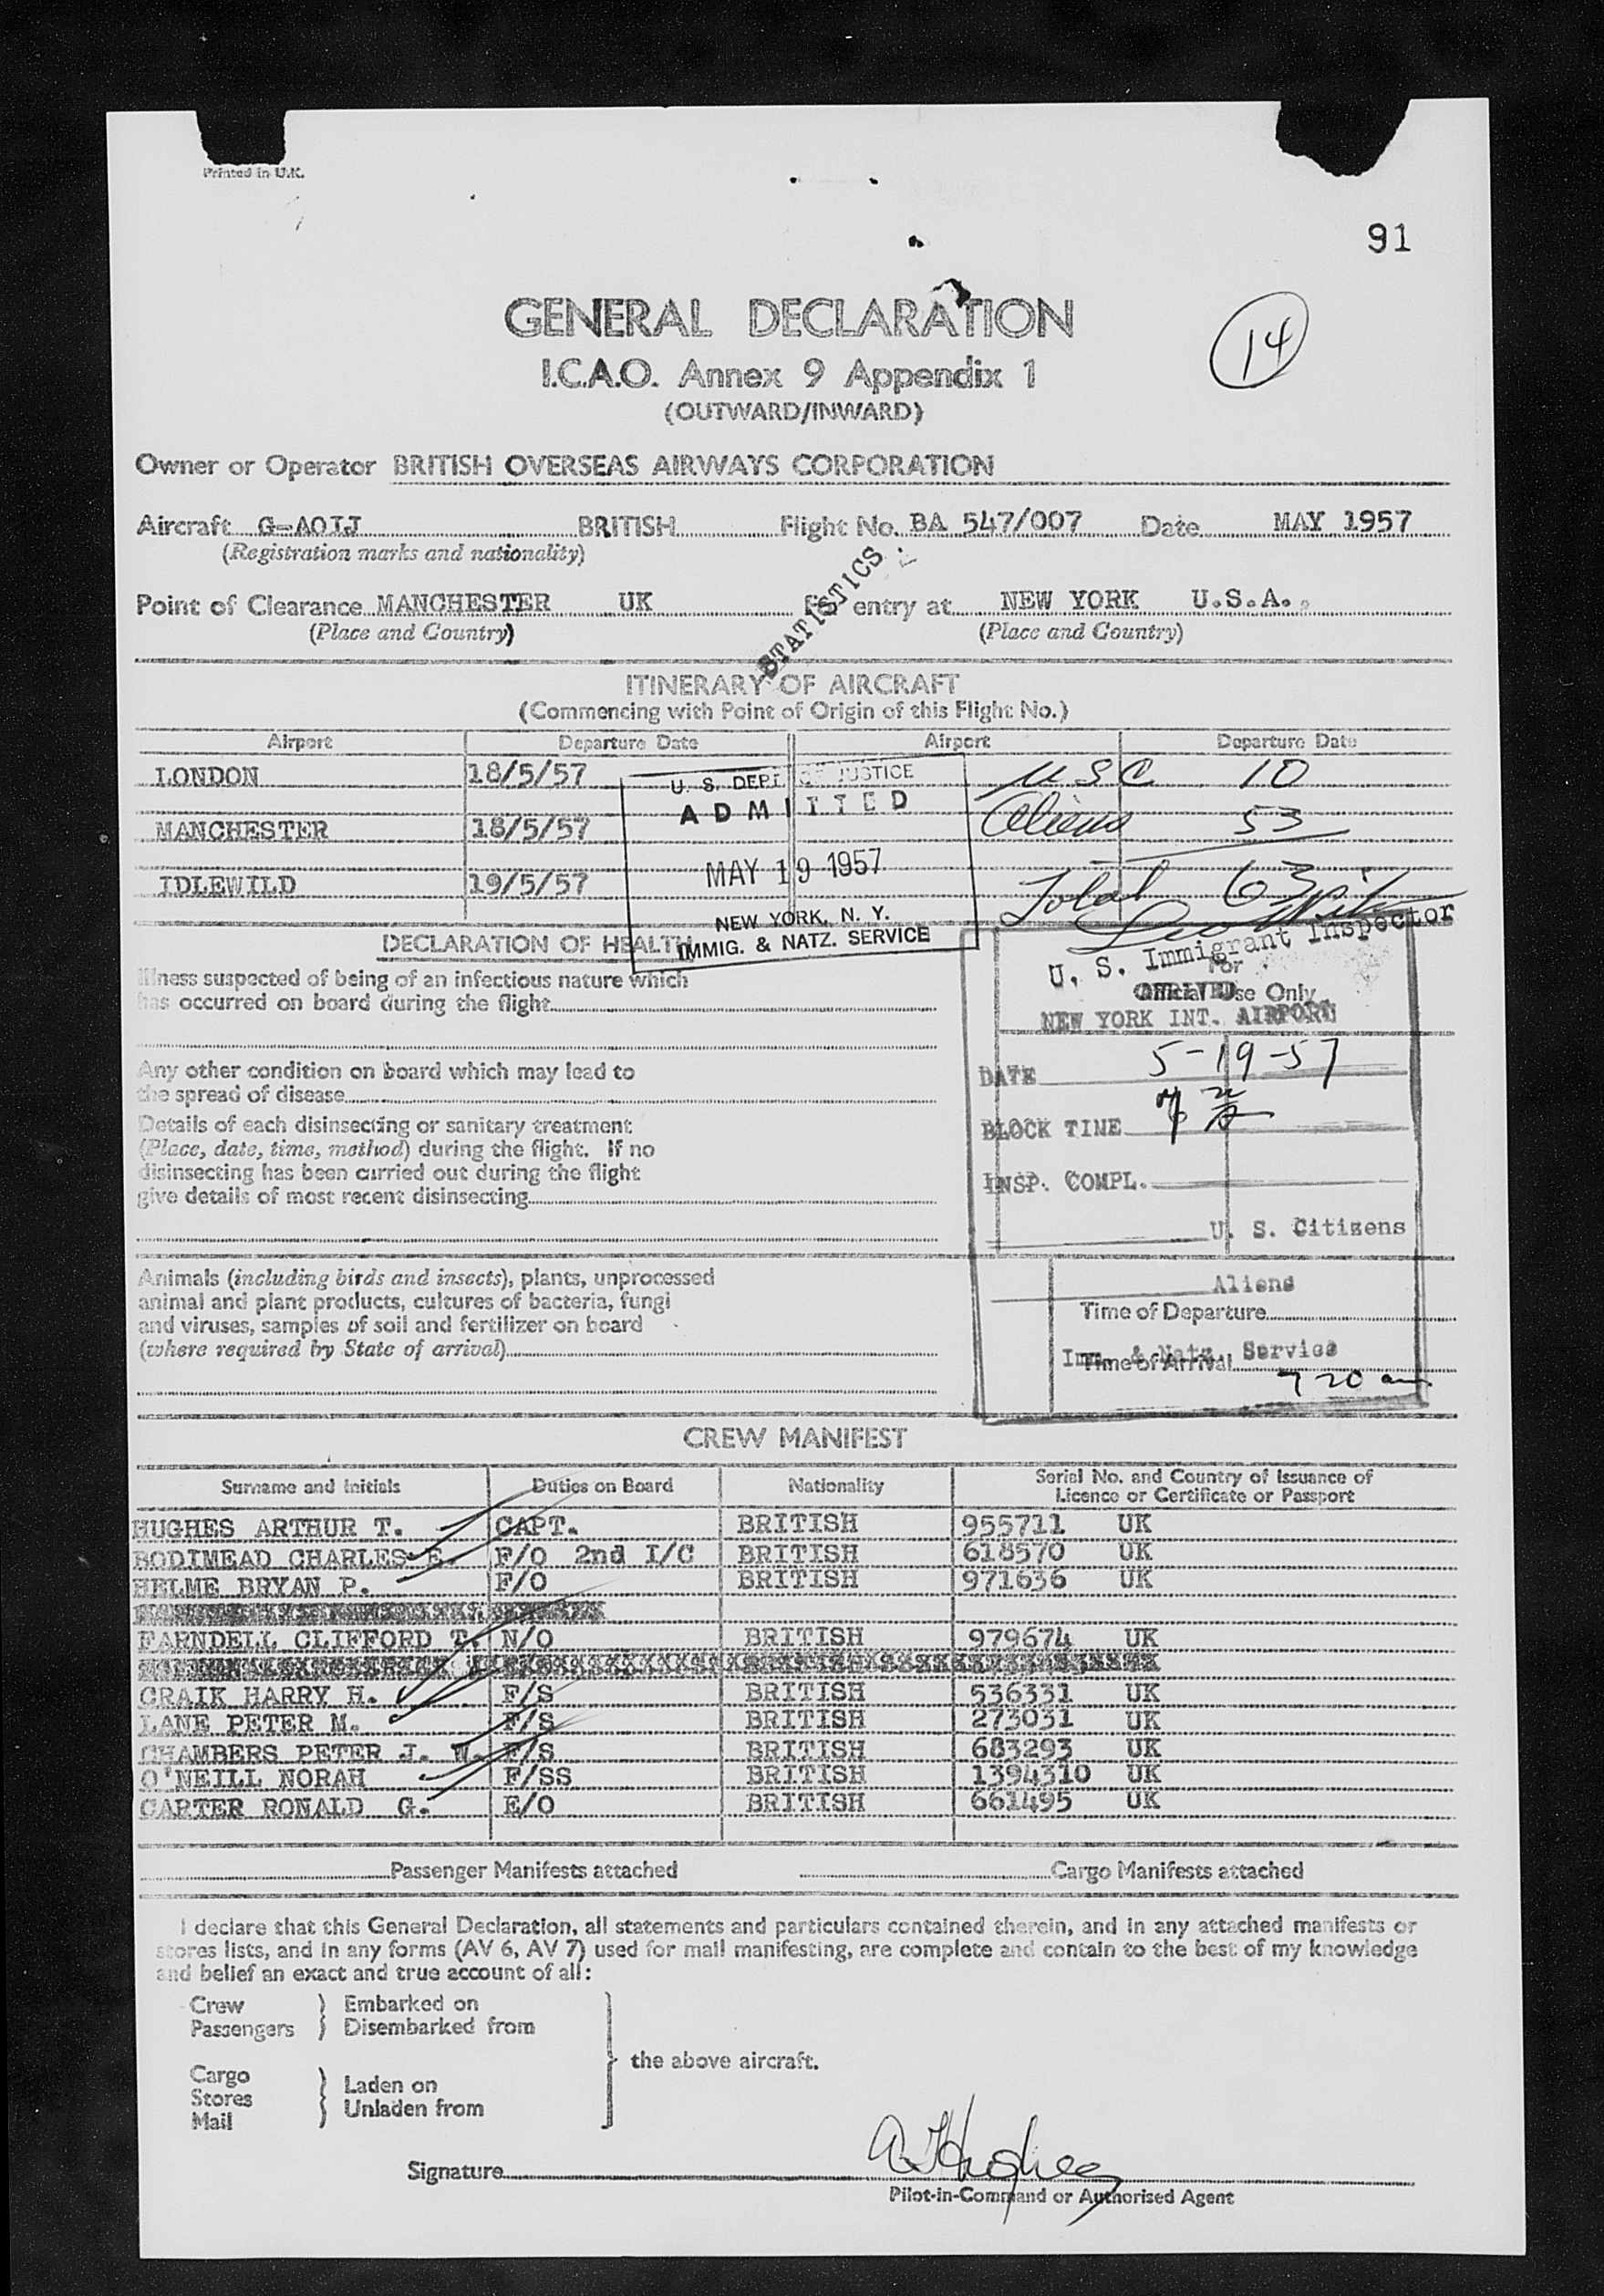 Printed in U.K.
91
GENERAL DECLARATION
14
I.C.A.O. Annex 9 Appendix 1
(OUTWARD/INWARD)
Owner or Operator BRITISH OVERSEAS AIRWAYS CORPORATION
Aircraft G-AOIJ BRITISH Flight No. BA 547/007 Date MAY 1957
(Registration marks and nationality)
STATISTICS
Point of Clearance MANCHESTER UK For entry at NEW YORK U.S.A.
(Place and Country) (Place and Country)
ITINERARY OF AIRCRAFT
(Commencing with Point of Origin of this Flight No.)
Airport Departure Date Airport Departure Date
LONDON 18/5/57 USC 10
MANCHESTER 18/5/57 Aliens 53
IDLEWILD 19/5/57 Total 63
U. S. DEPT. OF JUSTICE
ADMITTED
MAY 19 1957
NEW YORK, N. Y.
IMMIG. & NATZ. SERVICE
U. S. Immigrant Inspector
DECLARATION OF HEALTH
For
Official Use Only
ARRIVED
NEW YORK INT. AIRPORT
DATE 5-19-57
BLOCK TIME
INSP. COMPL.
U. S. Citizens
Aliens
Time of Departure
Imm. & Natz. Service
Time of Arrival
7 20 am
Illness suspected of being of an infectious nature which
has occurred on board during the flight
Any other condition on board which may lead to
the spread of disease
Details of each disinsecting or sanitary treatment
(Place, date, time, method) during the flight. If no
disinsecting has been carried out during the flight
give details of most recent disinsecting
Animals (including birds and insects), plants, unprocessed
animal and plant products, cultures of bacteria, fungi
and viruses, samples of soil and fertilizer on board
(where required by State of arrival)
CREW MANIFEST
Surname and Initials Duties on Board Nationality Serial No. and Country of Issuance of
Licence or Certificate or Passport
HUGHES ARTHUR T. CAPT. BRITISH 955711 UK
BODIMEAD CHARLES E. F/O 2nd I/C BRITISH 618570 UK
HELME BRYAN P. F/O BRITISH 971636 UK
FARNDELL CLIFFORD T. N/O BRITISH 979674 UK
CRAIK HARRY H. F/S BRITISH 536331 UK
LANE PETER M. F/S BRITISH 273031 UK
CHAMBERS PETER J. W. F/S BRITISH 683293 UK
O'NEILL NORAH F/SS BRITISH 1394310 UK
CARTER RONALD G. E/O BRITISH 661495 UK
Passenger Manifests attached Cargo Manifests attached
I declare that this General Declaration, all statements and particulars contained therein, and in any attached manifests or
stores lists, and in any forms (AV 6, AV 7) used for mail manifesting, are complete and contain to the best of my knowledge
and belief an exact and true account of all:
Crew Embarked on
Passengers Disembarked from
the above aircraft.
Cargo
Stores Laden on
Mail Unladen from
Signature A T Hughes
Pilot-in-Command or Authorised Agent